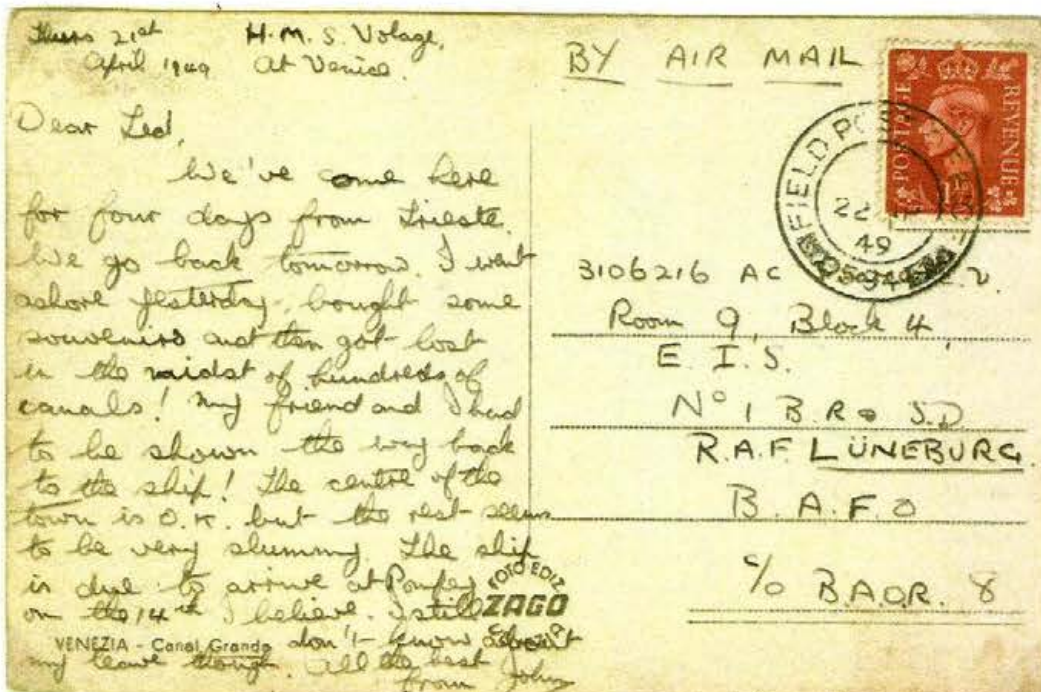 Thurs 21st
April 1949
H.M.S. Volage,
At Venice.
Dear Ted,
We've come here
for four days from Trieste.
We go back tomorrow. I went
ashore yesterday, bought some
souvenirs and then got lost
in the midst of hundreds of
canals! My friend and I had
to be shown the way back
to the ship! The centre of the
town is O.K. but the rest seems
to be very slummy. The ship
is due to arrive at Pompey
on the 14th I believe. I still
don't know about
my leave though. All the best
from John
VENEZIA - Canal Grande
FOTO EDIZ
ZAGO
BY AIR MAIL
POSTAGE REVENUE
FIELD POST
22
49
3106216 AC
Room 9, Block 4,
E. I. S.
No 1 B.R. & S.D.
R.A.F. LÜNEBURG.
B. A. F. O
c/o B.A.O.R. 8